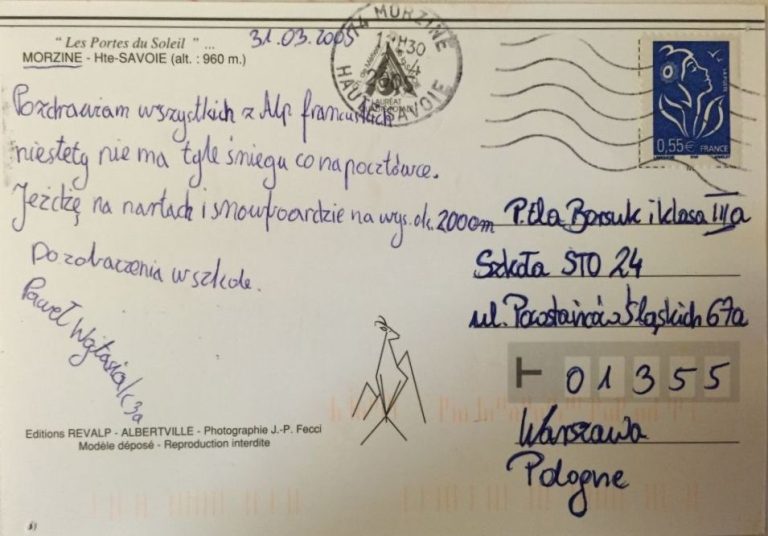 " Les Portes du Soleil " ...
MORZINE - Hte-SAVOIE (alt. : 960 m.)
31.03.2005
74 MORZINE
HAUTE-SAVOIE
0,55€ FRANCE
Pozdrawiam wszystkich z Alp francuskich
niestety nie ma tyle śniegu co na pocztówce.
Jeżdżę na nartach i snowboardzie na wys. ok. 2000m
Do zobaczenia w szkole.
Paweł
3a
P. Ela Borsuk i klasa IIIa
Szkoła STO 24
ul. Powstańców Śląskich 67a
01355
Warszawa
Pologne
Editions REVALP - ALBERTVILLE - Photographie J.-P. Fecci
Modèle déposé - Reproduction interdite